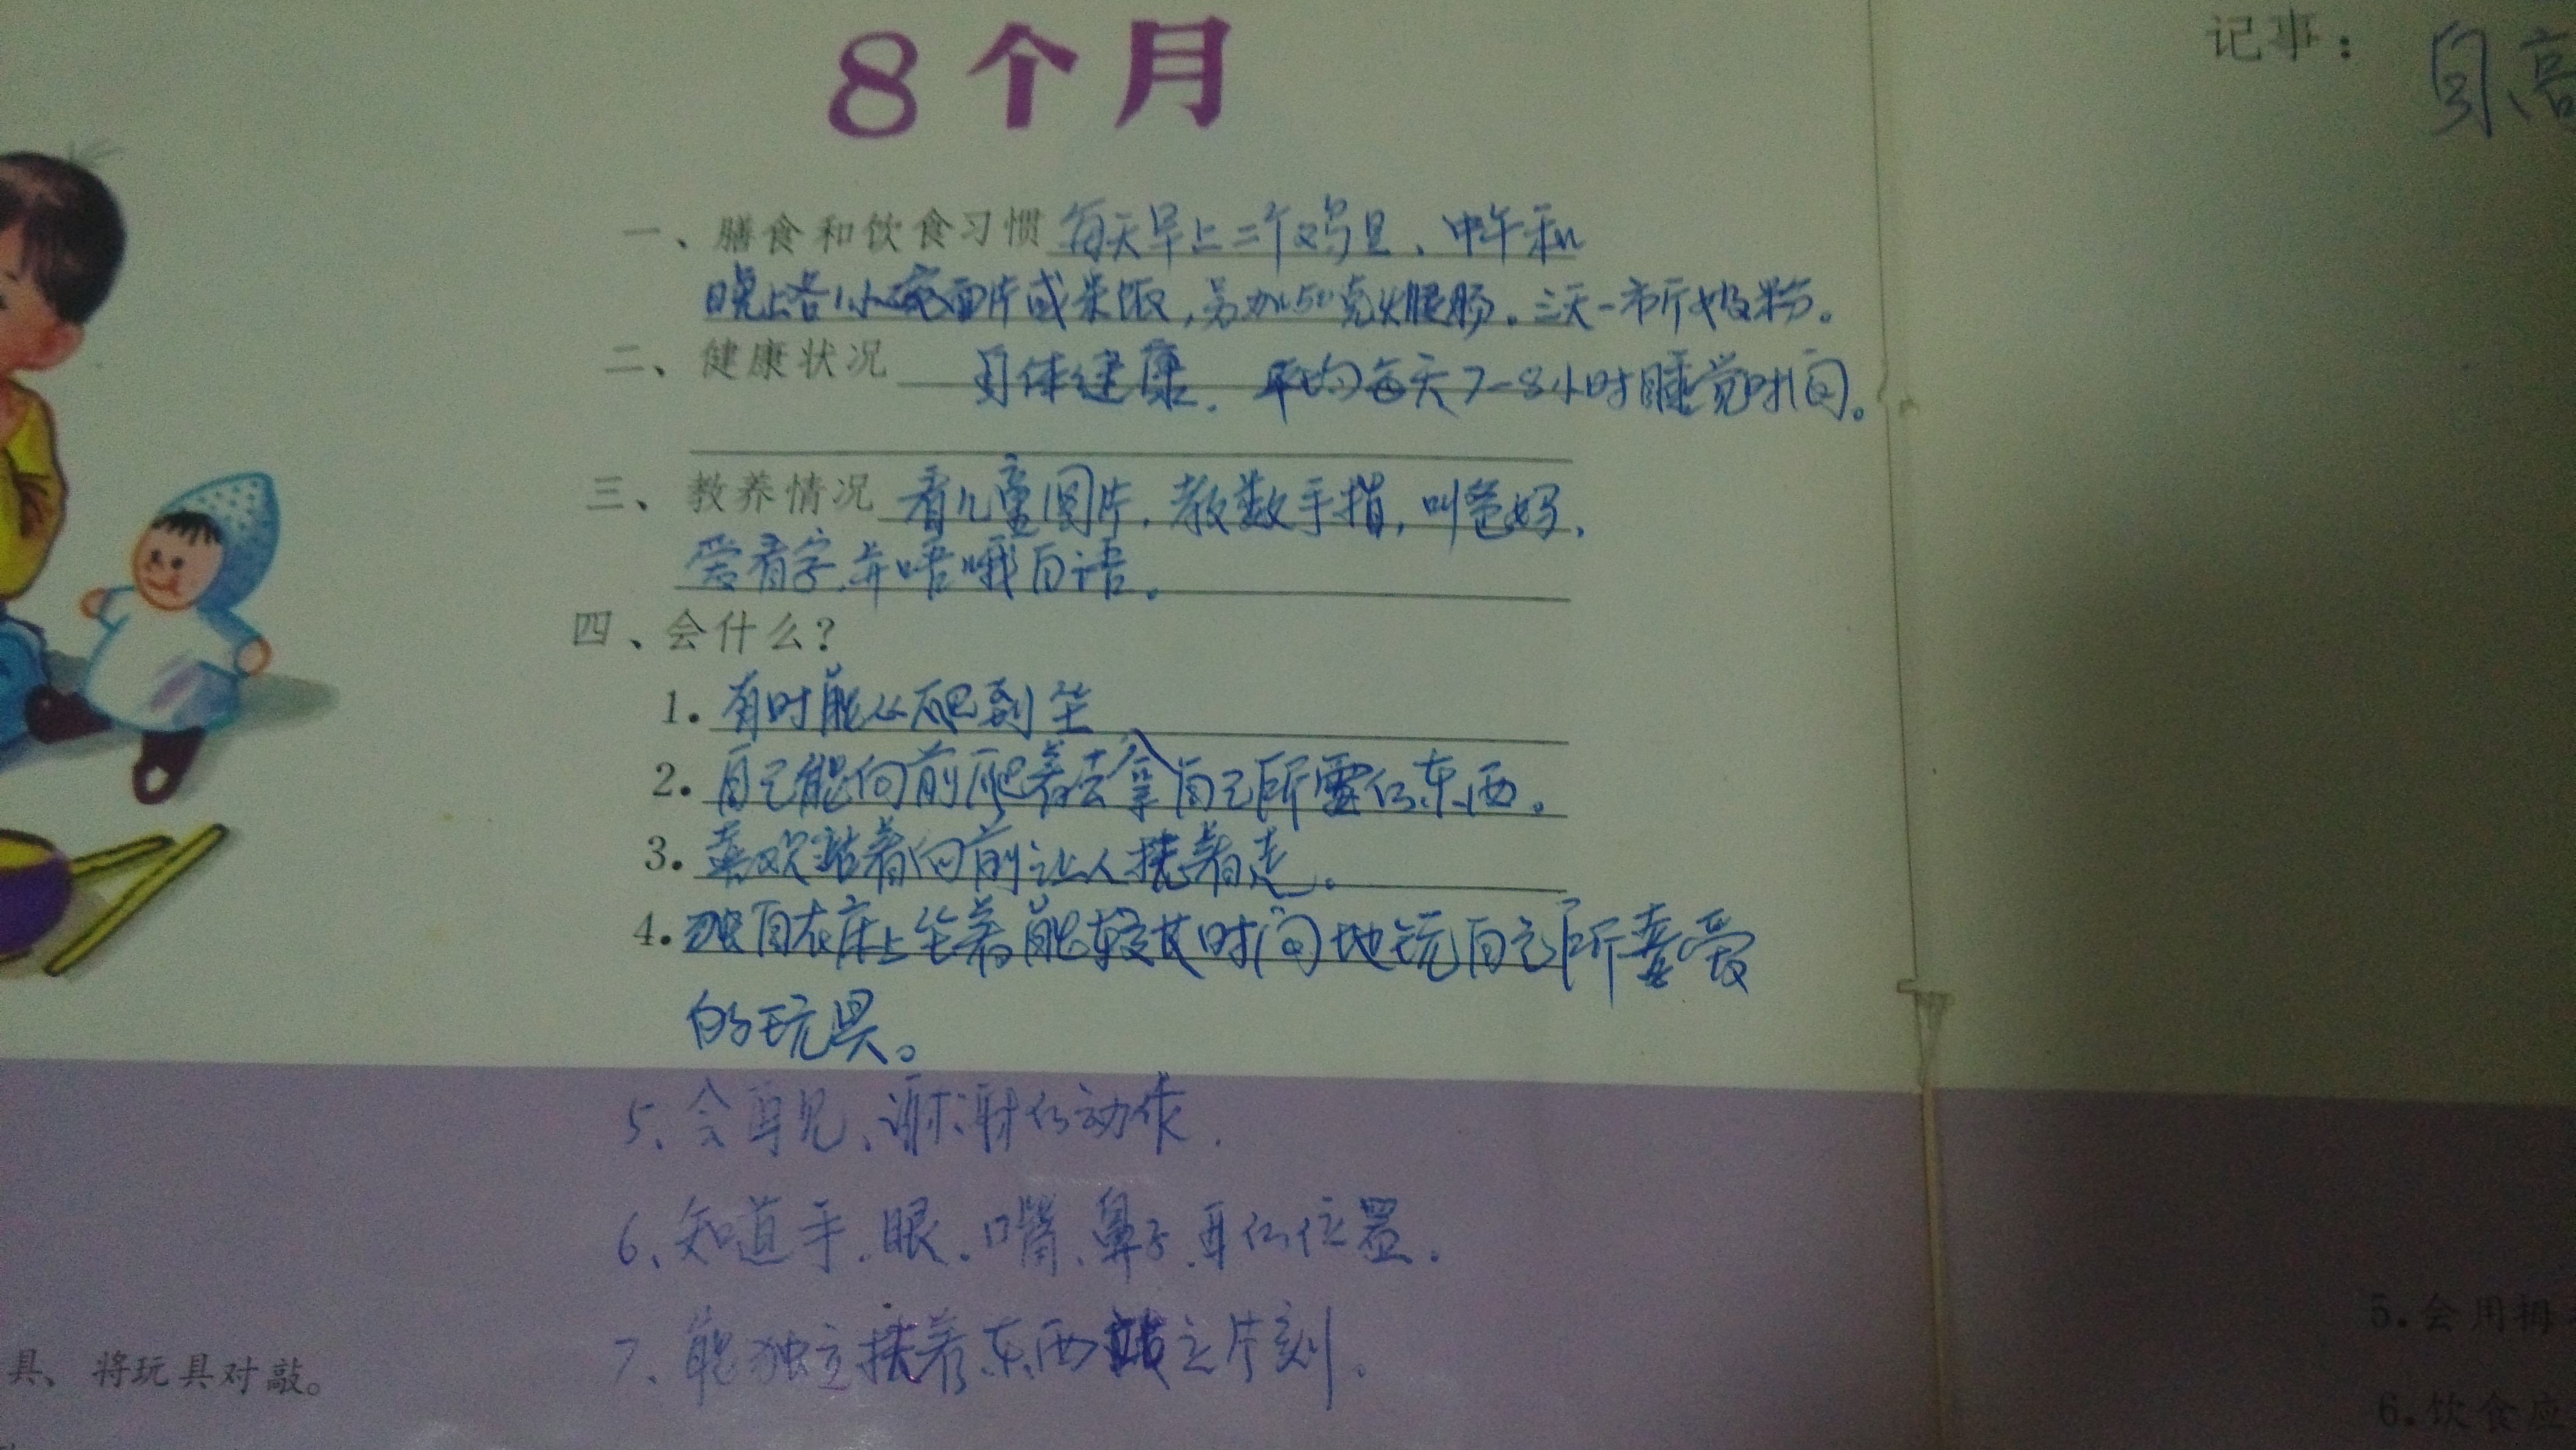 8个月
一、膳食和饮食习惯 每天早上二个鸡旦、中午和
晚上各1小碗面片或米饭，另加50克火腿肠。三天一市斤奶粉。
二、健康状况 身体健康．平均每天7-8小时睡觉时间。
三、教养情况 看儿童图片．教数手指，叫爸妈．
爱看字．并唔哦自语。
四、会什么？
1. 有时能从爬到坐
2. 自己能向前爬着去拿自己所需的东西。
3. 喜欢站着向前让人扶着走。
4. 独自在床上坐着能较长时间地玩自己所喜爱
的玩具。
5、会再见、谢谢的动作．
6、知道手．眼．嘴、鼻子．耳的位置．
7、能独立扶着东西站立片刻。
具、将玩具对敲。
记事：
5.会用拇
6.饮食应